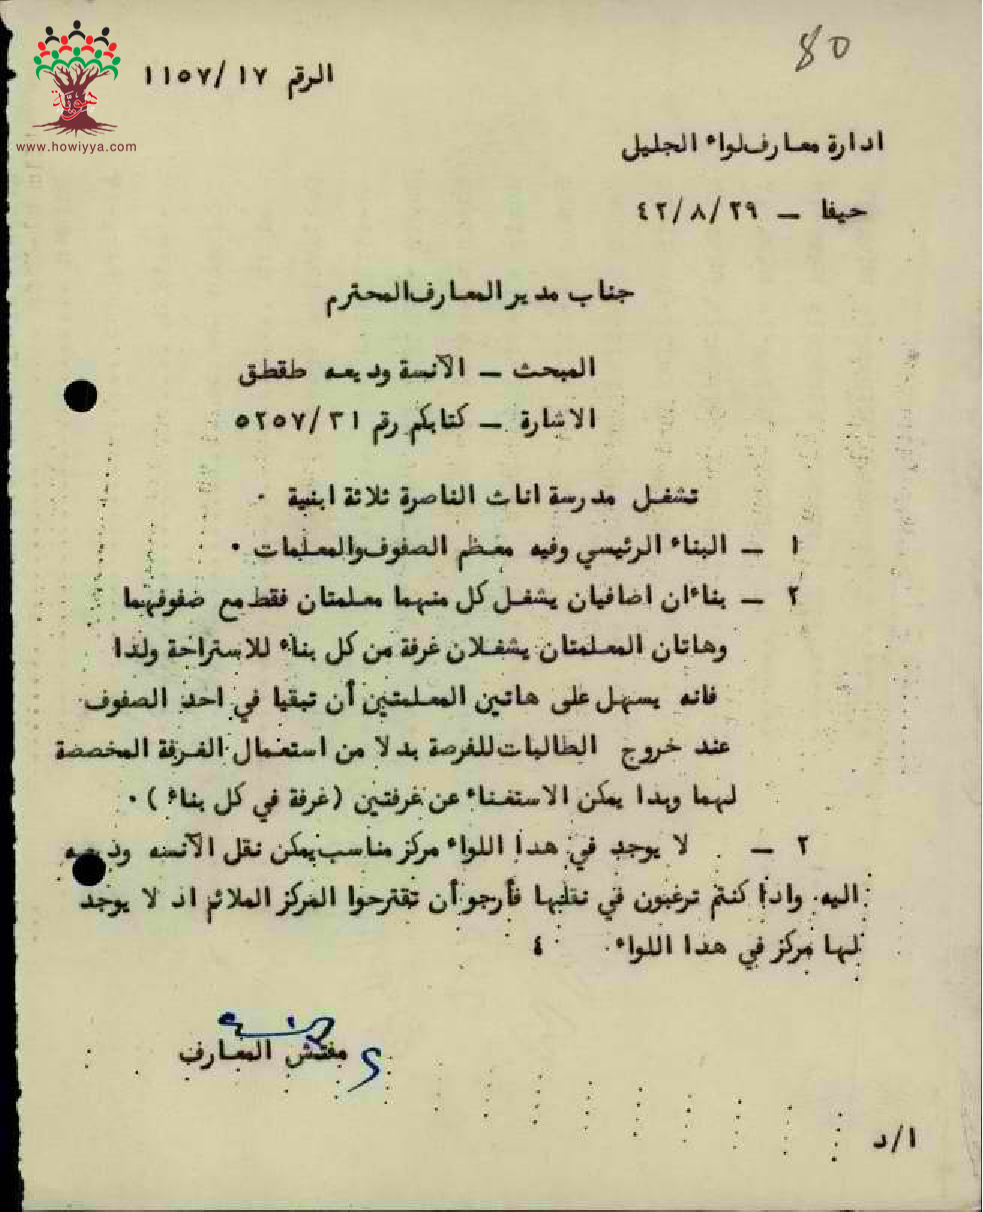 80
الرقم ١١٥٧/١٧
هوية
www.howiyya.com
ادارة معارف لواء الجليل
حيفا – ٤٢/٨/٢٩
جناب مدير المعارف المحترم
المبحث – الآنسة وديعه طقطق
الاشارة – كتابكم رقم ٥٢٥٧/٣١
تشغل مدرسة اناث الناصرة ثلاثة ابنية ٠
١ – البناء الرئيسي وفيه معظم الصفوف والمعلمات ٠
٢ – بناءان اضافيان يشغل كل منهما معلمتان فقط مع صفوفهما
وهاتان المعلمتان يشغلان غرفة من كل بناء للاستراحة ولدا
فانه يسهل على هاتين المعلمتين أن تبقيا في احد الصفوف
عند خروج الطالبات للفرصة بدلا من استعمال الغرفة المخصصة
لهما وبدا يمكن الاستغناء عن غرفتين (غرفة في كل بناء) ٠
٢ – لا يوجد في هدا اللواء مركز مناسب يمكن نقل الآنسه وديعه
اليه. وادا كنتم ترغبون في نقلها فأرجو أن تقترحوا المركز الملائم اد لا يوجد
لها مركز في هدا اللواء. ٤
مفتش المعارف
ا/د